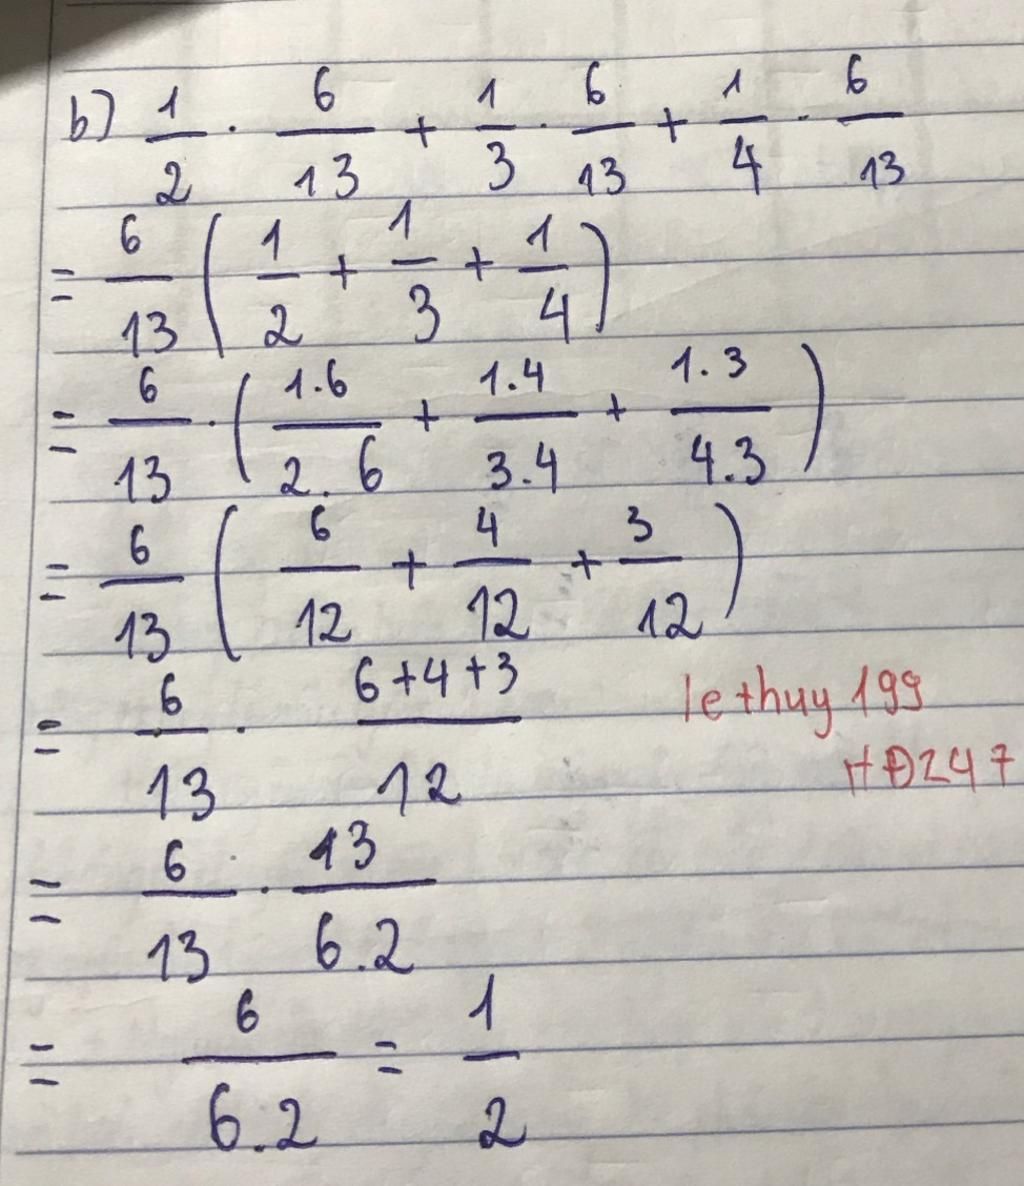 b) 1/2 . 6/13 + 1/3 . 6/13 + 1/4 . 6/13
= 6/13 ( 1/2 + 1/3 + 1/4 )
= 6/13 . ( 1.6/2.6 + 1.4/3.4 + 1.3/4.3 )
= 6/13 ( 6/12 + 4/12 + 3/12 )
= 6/13 . 6+4+3/12
lethuy 199
HĐ247
= 6/13 . 13/6.2
= 6/6.2 = 1/2